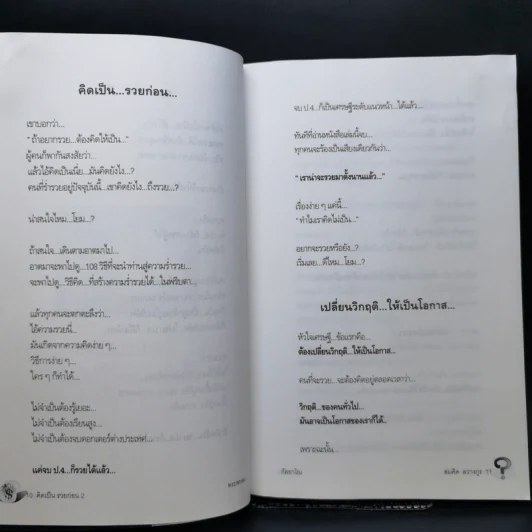 คิดเป็น...รวยก่อน...
เขาบอกว่า...
" ถ้าอยากรวย...ต้องคิดให้เป็น..."
ผู้คนก็พากันสงสัยว่า...
แล้วไอ้คิดเป็นเนี่ย...มันคิดยังไง...?
คนที่ร่ำรวยอยู่ปัจจุบันนี้...เขาคิดยังไง...ถึงรวย...?
น่าสนใจไหม...โยม...?
ถ้าสนใจ...เดินตามอาตมาไป...
อาตมาจะพาไปดู...108 วิธีที่จะนำท่านสู่ความร่ำรวย...
จะพาไปดู...วิธีคิด...ที่สร้างความร่ำรวยได้...ในพริบตา...
แล้วทุกคนจะตกตะลึงว่า...
ไอ้ความรวยนี่...
มันเกิดจากความคิดง่าย ๆ...
วิธีการง่าย ๆ...
ใคร ๆ ก็ทำได้...
ไม่จำเป็นต้องรู้เยอะ...
ไม่จำเป็นต้องเรียนสูง...
ไม่จำเป็นต้องจบดอกเตอร์ต่างประเทศ...
แค่จบ ป.4...ก็รวยได้แล้ว...
10 คิดเป็น รวยก่อน 2
จบ ป.4...ก็เป็นเศรษฐีระดับแนวหน้า...ได้แล้ว...
ทันทีที่อ่านหนังสือเล่มนี้จบ...
ทุกคนจะร้องเป็นเสียงเดียวกันว่า...
" เราน่าจะรวยมาตั้งนานแล้ว..."
เรื่องง่าย ๆ แค่นี้...
" ทำไมเราคิดไม่เป็น..."
อยากจะรวยหรือยัง...?
เริ่มเลย...ดีไหม...โยม...?
เปลี่ยนวิกฤติ...ให้เป็นโอกาส...
หัวใจเศรษฐี...ข้อแรกคือ...
ต้องเปลี่ยนวิกฤติ...ให้เป็นโอกาส...
คนที่จะรวย...จะต้องคิดอยู่ตลอดเวลาว่า...
วิกฤติ...ของคนทั่วไป...
มันอาจเป็นโอกาสของเราก็ได้..
เพราะฉะนั้น...
สมคิด ลวางกูร 11